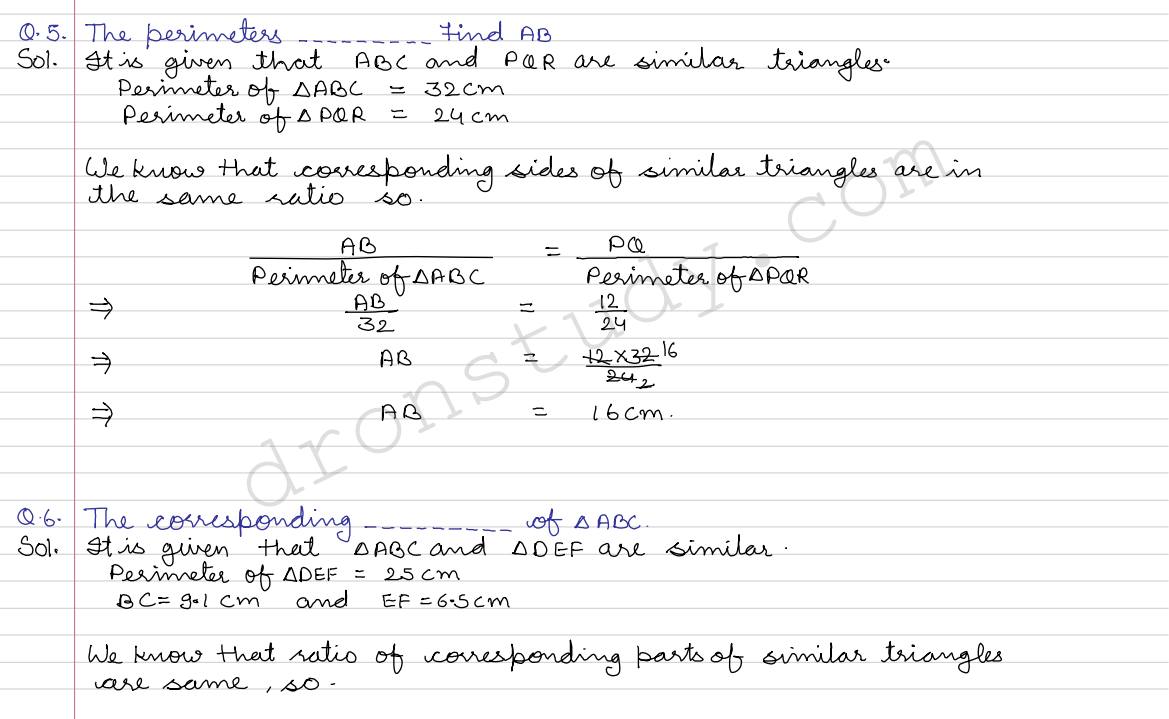 Q.5. The perimeters _________ find AB
Sol. It is given that ABC and PQR are similar triangles.
Perimeter of ΔABC = 32cm
Perimeter of ΔPQR = 24cm
We know that corresponding sides of similar triangles are in
the same ratio so.
AB / Perimeter of ΔABC = PQ / Perimeter of ΔPQR
⇒ AB/32 = 12/24
⇒ AB = 12×32 16 / 24 2
⇒ AB = 16cm.
Q.6. The corresponding _________ of ΔABC.
Sol. It is given that ΔABC and ΔDEF are similar.
Perimeter of ΔDEF = 25cm
BC= 9.1 cm and EF = 6.5cm
We know that ratio of corresponding parts of similar triangles
are same, so.
dronstudy.com